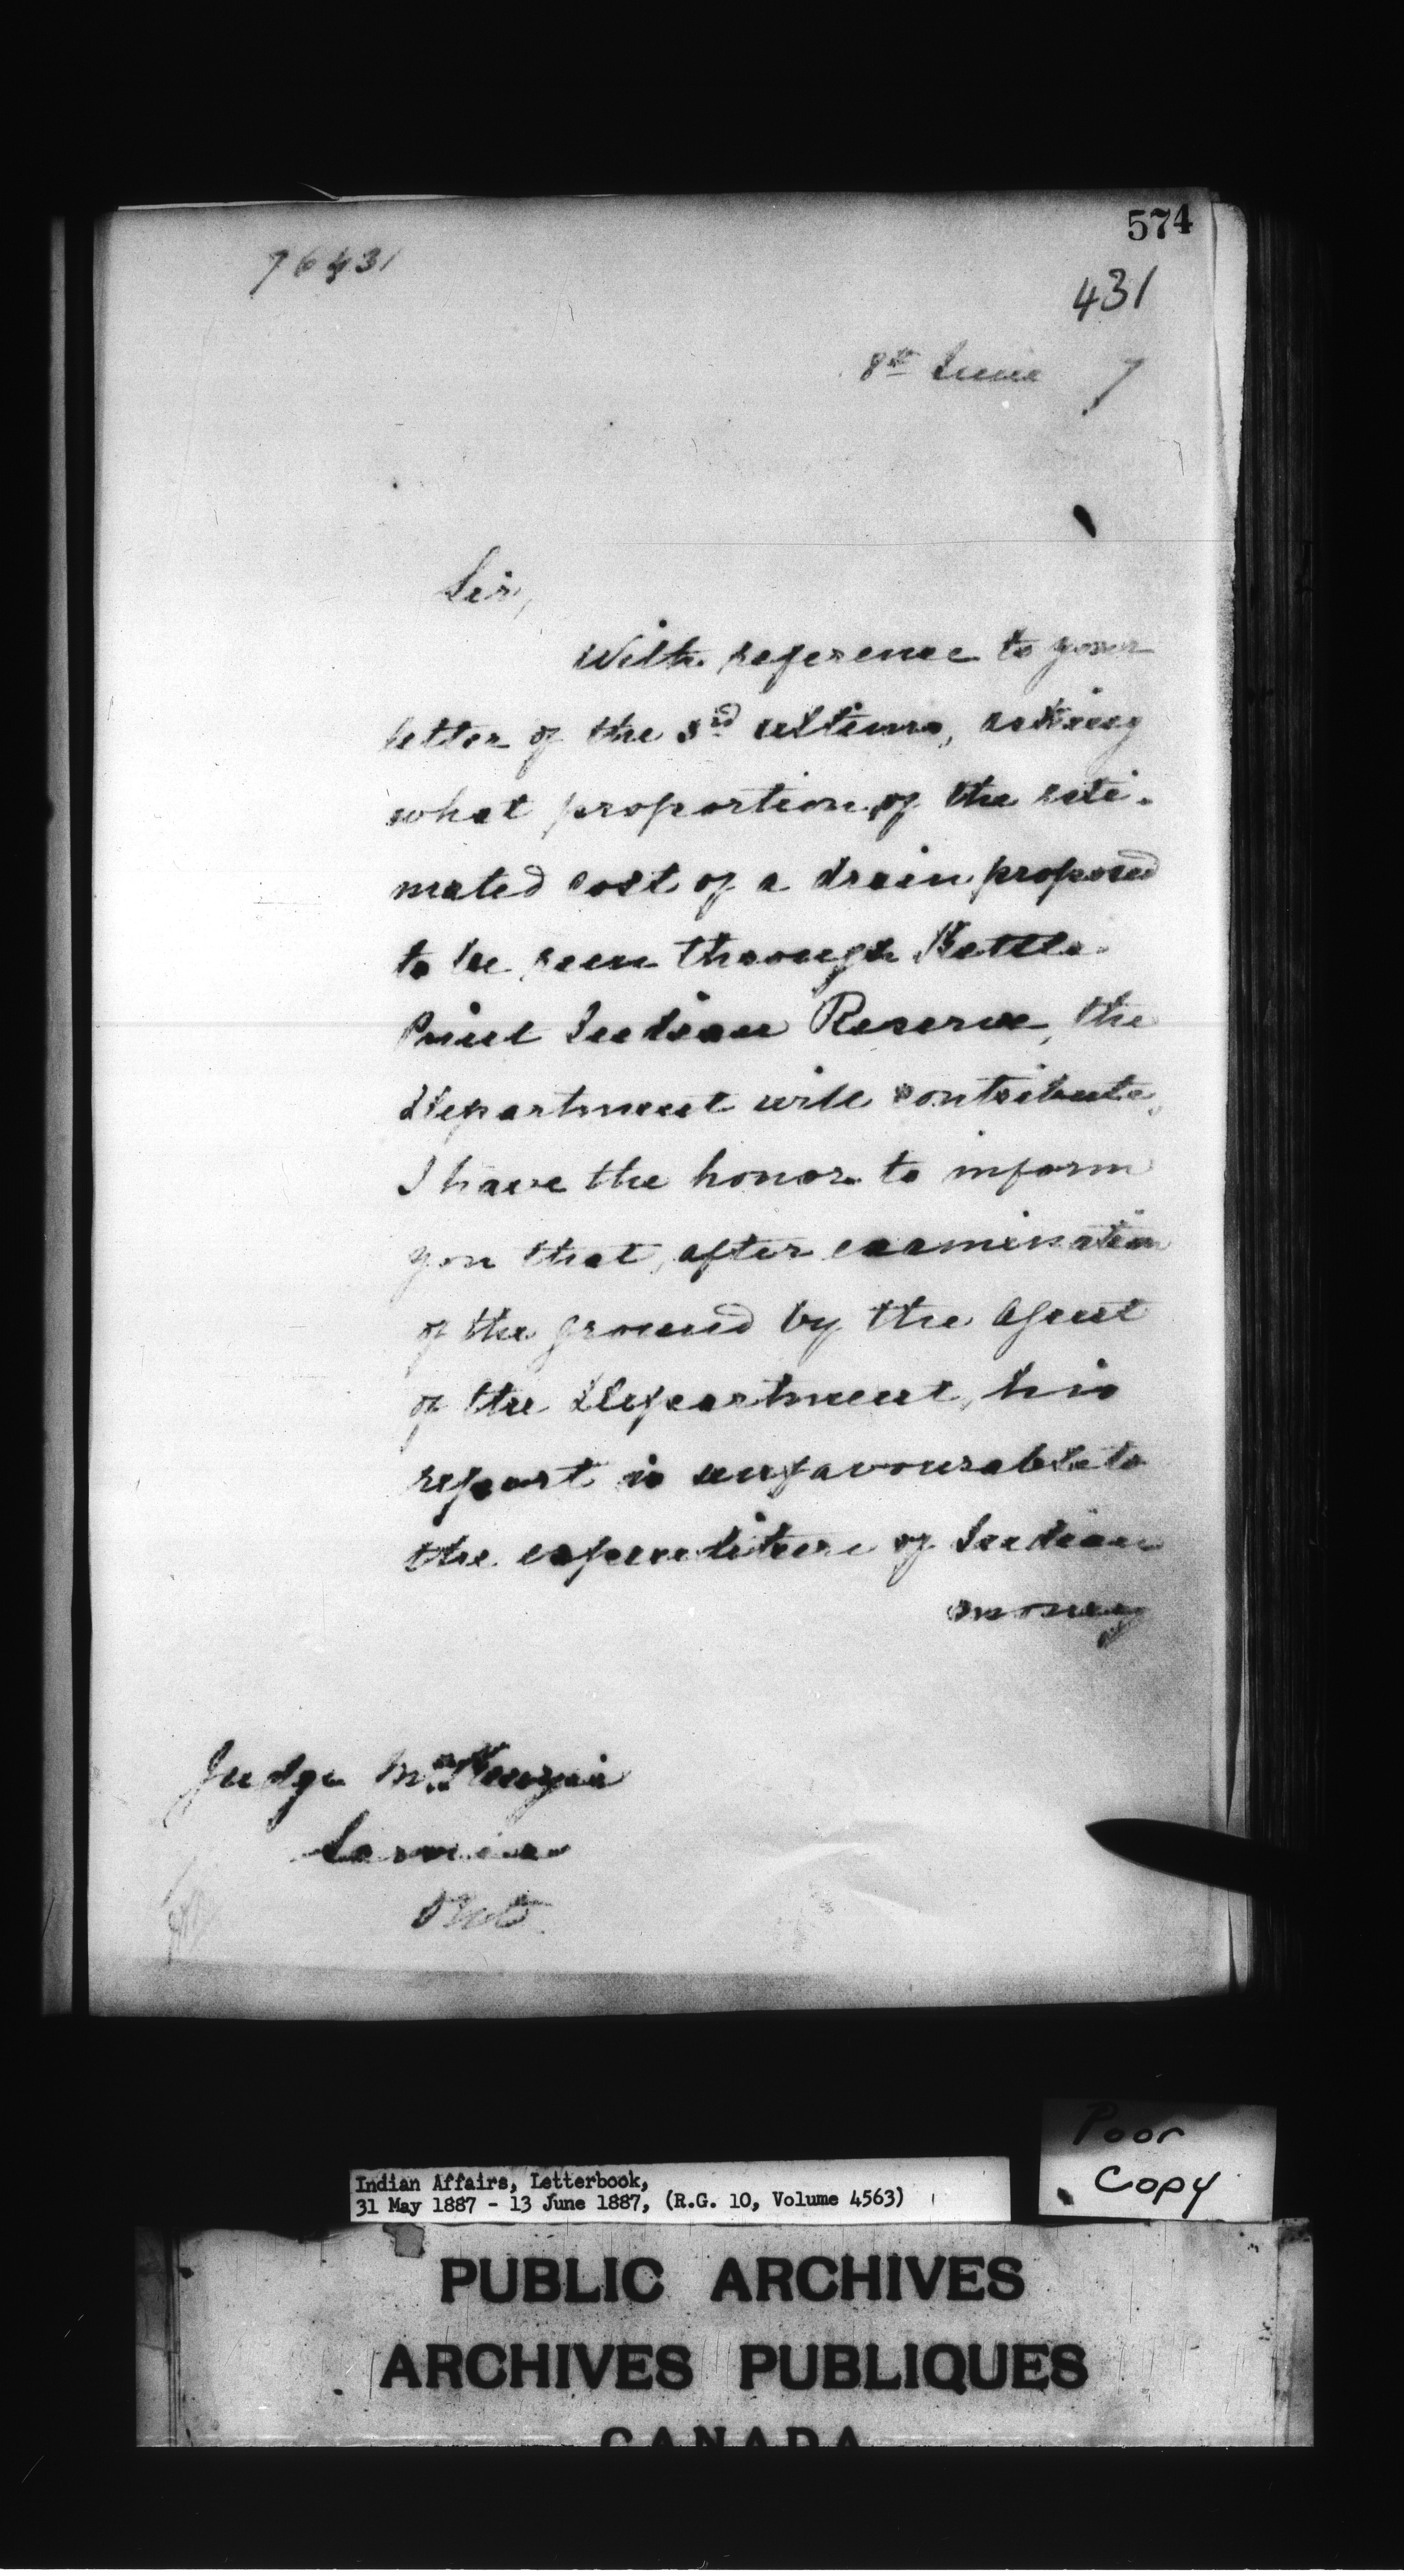 574
76431
431
8th June 7
Sir,
With reference to your
letter of the 3rd ultimo, asking
what proportion of the esti-
mated cost of a drain proposed
to be run through Kettle
Point Indian Reserve, the
Department will contribute,
I have the honor to inform
you that, after examination
of the ground by the Agent
of the Department, his
report is unfavourable to
the expenditure of Indian
money
Judge McKenzie
Sarnia
Ont
Poor
Copy
Indian Affairs, Letterbook,
31 May 1887 - 13 June 1887, (R.G. 10, Volume 4563)
PUBLIC ARCHIVES
ARCHIVES PUBLIQUES
CANADA